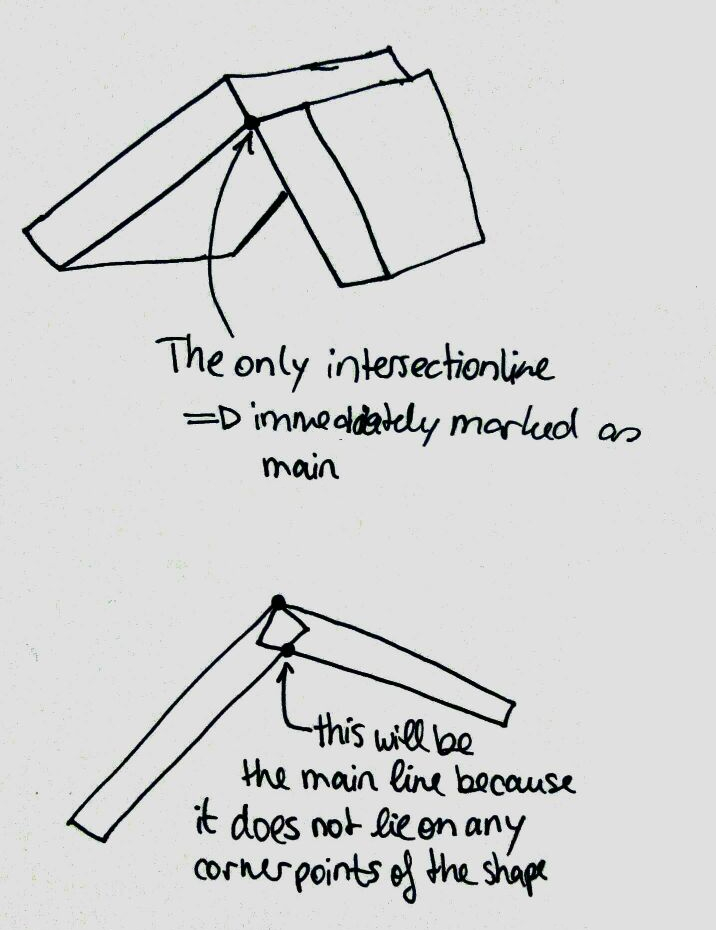 The only intersectionline
=D immediately marked as
main
this will be
the main line because
it does not lie on any
corner points of the shape